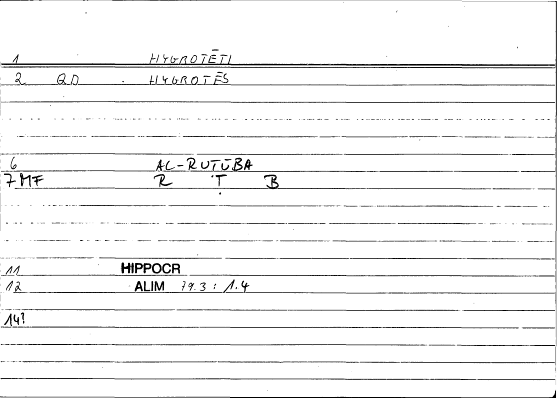 1 HYGROTĒTI
2 QD . HYGROTĒS
6 AL-RUṬŪBA
7 MF R Ṭ B
11 HIPPOCR
12 ALIM 79.3 : 1.4
14!